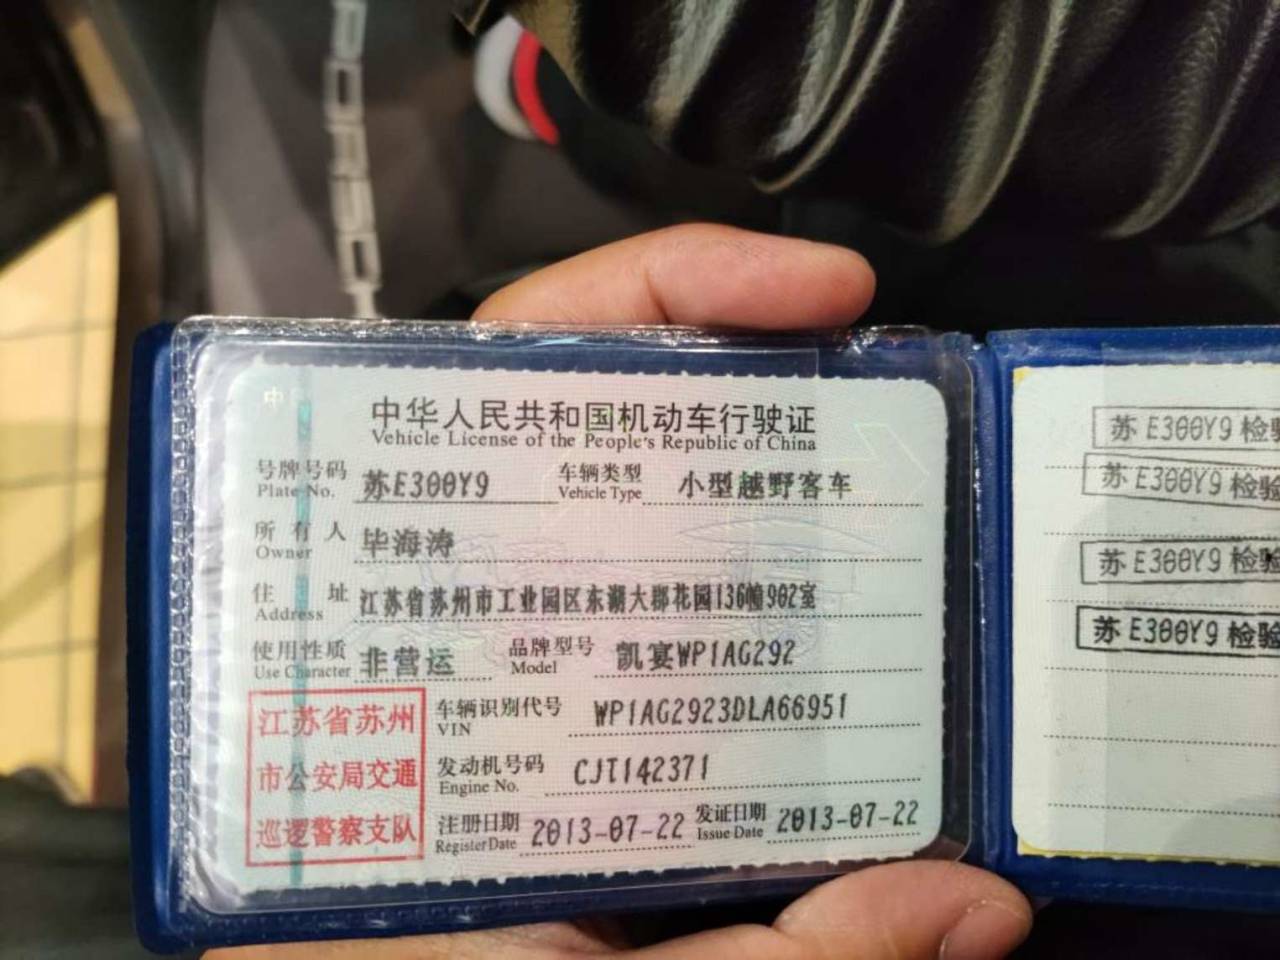 PORSC
中华人民共和国机动车行驶证
Vehicle License of the People's Republic of China
号牌号码 苏E300Y9 车辆类型 小型越野客车
Plate No. Vehicle Type
所有人 毕海涛
Owner
住址 江苏省苏州市工业园区东湖大郡花园136幢902室
Address
使用性质 非营运 品牌型号 凯宴WP1AG292
Use Character Model
江苏省苏州
市公安局交通
巡逻警察支队
车辆识别代号 WP1AG2923DLA66951
VIN
发动机号码 CJT142371
Engine No.
注册日期 2013-07-22 发证日期 2013-07-22
Register Date Issue Date
苏E300Y9检验
苏E300Y9检验
苏E300Y9检验
苏E300Y9检验